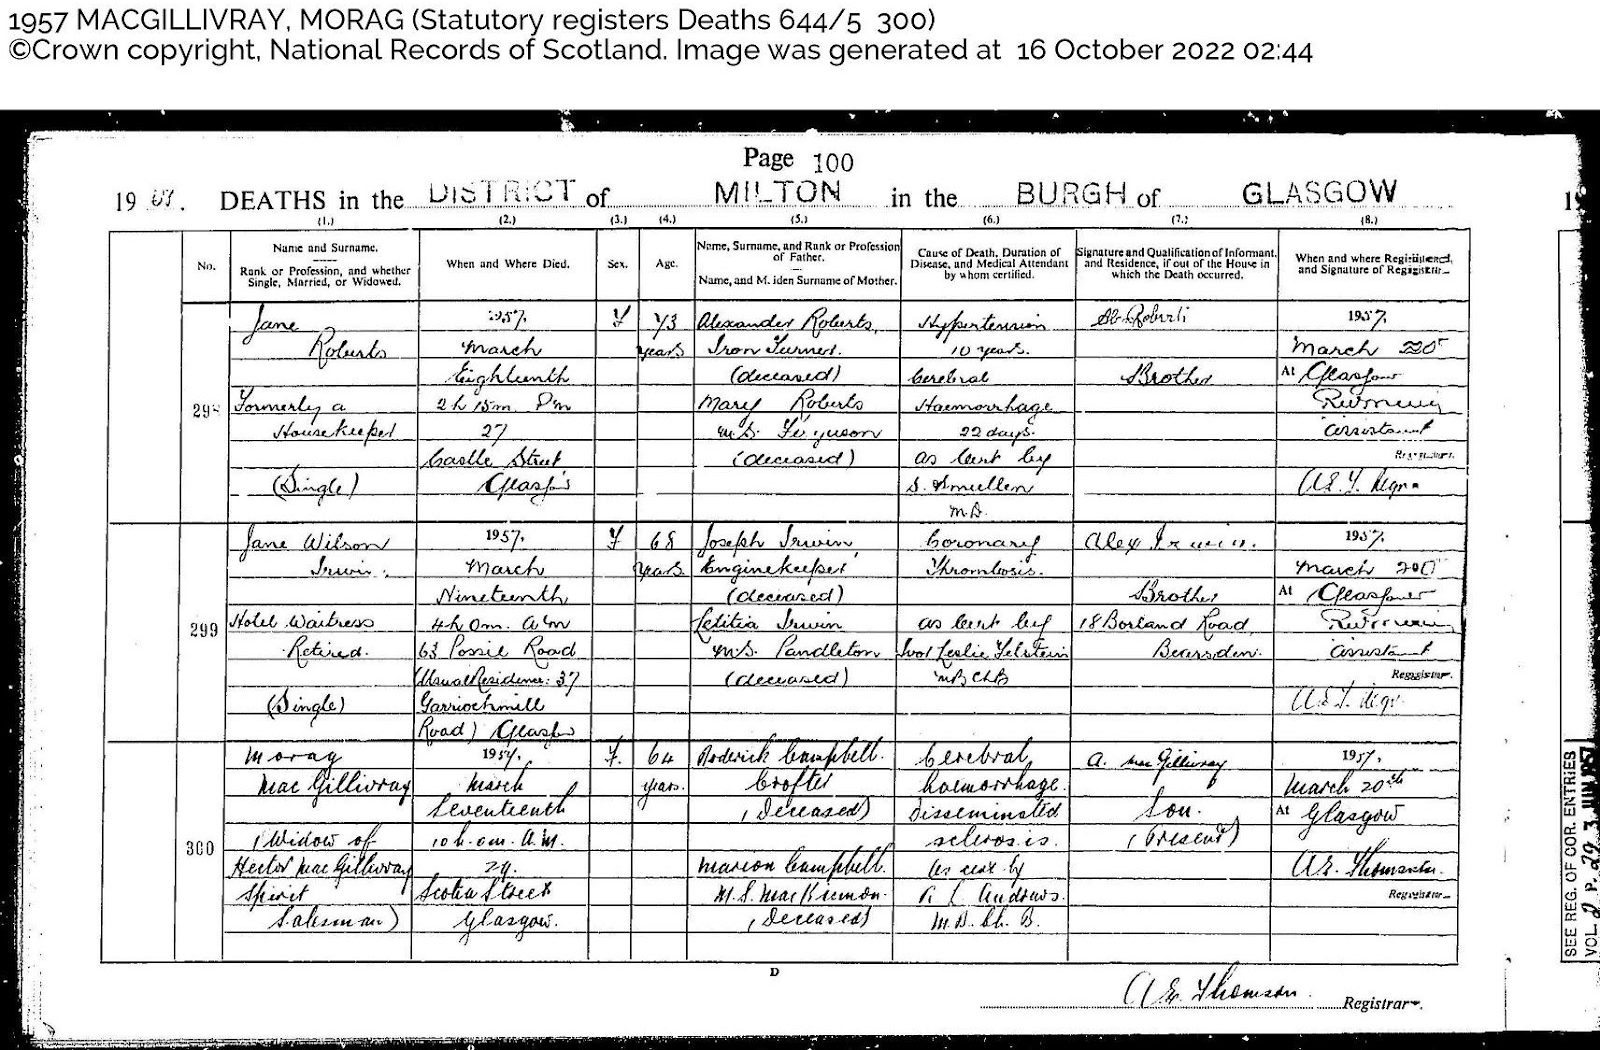 1957 MACGILLIVRAY, MORAG (Statutory registers Deaths 644/5 300)
©Crown copyright, National Records of Scotland. Image was generated at 16 October 2022 02:44
Page 100
19 57. DEATHS in the DISTRICT of MILTON in the BURGH of GLASGOW
(1.) (2.) (3.) (4.) (5.) (6.) (7.) (8.)
No.
Name and Surname.
Rank or Profession, and whether
Single, Married, or Widowed.
When and Where Died.
Sex.
Age.
Name, Surname, and Rank or Profession
of Father.
Name, and Maiden Surname of Mother.
Cause of Death, Duration of
Disease, and Medical Attendant
by whom certified.
Signature and Qualification of Informant,
and Residence, if out of the House in
which the Death occurred.
When and where Registered,
and Signature of Registrar.
298
Jane
Roberts
Formerly a
Housekeeper
(Single)
1957.
March
Eighteenth
2 h 15m. Pm
27
Castle Street,
Glasgow
F
73
years
Alexander Roberts,
Iron Turner.
(deceased)
Mary Roberts
m.S. Ferguson
(deceased)
Hypertension
10 years.
Cerebral
Haemorrhage
22 days.
as cert by
S. Smullen
M.D.
Roberts
Brother
1957.
March 20
At Glasgow
assistant
Registrar.
299
Jane Wilson
Irwin.
Hotel Waitress
Retired.
(Single)
1957.
March
Nineteenth
4h 0m. am
63 Possil Road
(Usual Residence: 37
Garriochmill
Road) Glasgow
F
68
years
Joseph Irwin,
Enginekeeper
(deceased)
Letitia Irwin
m.S. Pandleton
(deceased)
Coronary
Thrombosis.
as cert by
Ivor Leslie Felstein
MB ChB
Alex Irwin.
Brother
18 Borland Road,
Bearsden.
1957.
March 20
At Glasgow
assistant
Registrar.
300
Morag
MacGillivray
(Widow of
Hector MacGillivray
Spirit
Salesman)
1957.
March
Seventeenth
10 h. 0m. A.M.
Scotia Street
Glasgow.
F.
64
years.
Roderick Campbell.
Crofter
(Deceased)
Marion Campbell.
M.S. MacKinnon.
(Deceased)
Cerebral
haemorrhage.
Disseminated
sclerosis.
as cert by
Andrews.
M.B. Ch. B.
A. MacGillivray
Son.
(Present)
1957.
March 20th
At Glasgow
A.E. Thomson.
Registrar.
D
A E. Thomson. Registrar.
SEE REG. OF COR. ENTRIES
VOL. 2 P. 29 3 JUN 1957